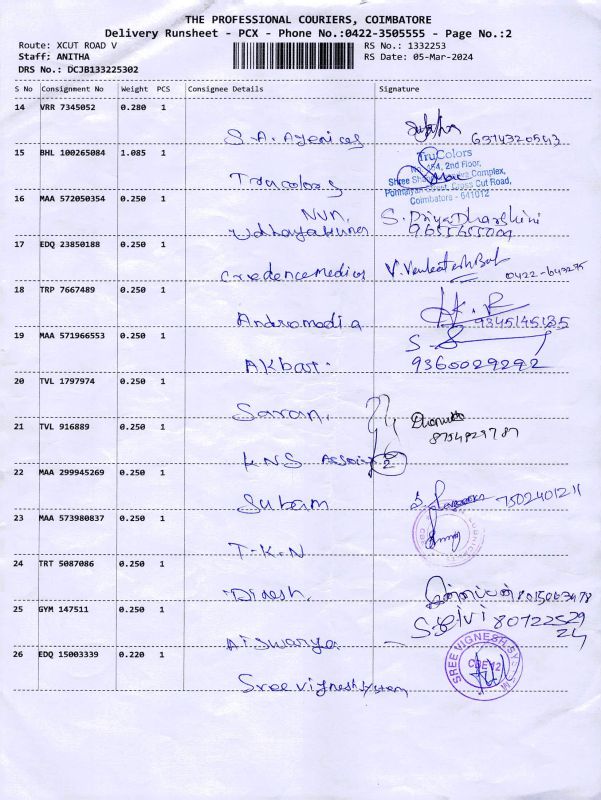 THE PROFESSIONAL COURIERS, COIMBATORE
Delivery Runsheet - PCX - Phone No.:0422-3505555 - Page No.:2
Route: XCUT ROAD V
RS No.: 1332253
Staff: ANITHA
RS Date: 05-Mar-2024
DRS No.: DCJB133225302
S No Consignment No Weight PCS Consignee Details Signature
14 VRR 7345052 0.280 1
S.A. Agenices 6374320543
15 BHL 100265084 1.085 1
TruColors
454, 2nd Floor,
Complex,
Cross Cut Road,
Coimbatore - 641012
Trucolors
16 MAA 572050354 0.250 1
Nun. S. PriyaDharshini
Udhayakumar 9655655009
17 EDQ 23850188 0.250 1
Credencemedicas V. Venkatesh Bab 0422-643275
18 TRP 7667489 0.250 1
Andromedia 9345145135
19 MAA 571966553 0.250 1
Akbar. 9360029292
20 TVL 1797974 0.250 1
Saran.
21 TVL 916889 0.250 1
8754829787
K.N.S Associ 2
22 MAA 299945269 0.250 1
Subam 7502401211
23 MAA 573980837 0.250 1
T.K.N
24 TRT 5087086 0.250 1
Dinesh. 8015063478
25 GYM 147511 0.250 1
S. Selvi 80722529
24
Aiswarya
26 EDQ 15003339 0.220 1
SREE VIGNESH SYSTEM
CBE-12
Sree vignesh system